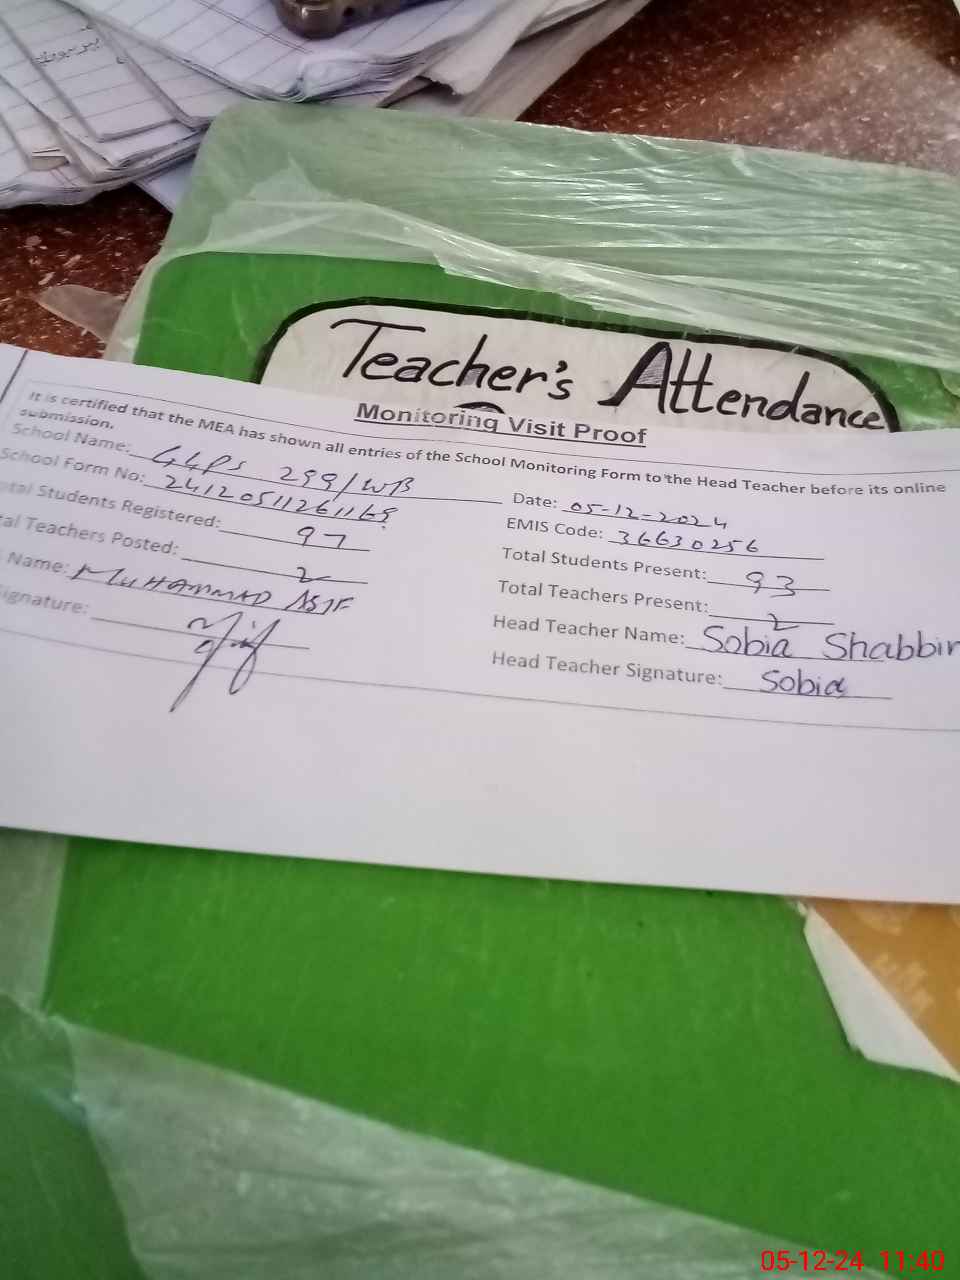 Teacher's Attendance
Monitoring Visit Proof
It is certified that the MEA has shown all entries of the School Monitoring Form to the Head Teacher before its online
submission.
School Name: GGPS 299/WB
Date: 05-12-2024
School Form No: 24120511261169
EMIS Code: 36630256
otal Students Registered: 97
Total Students Present: 93
tal Teachers Posted: 2
Total Teachers Present: 2
Name: MUHAMMAD ASIF
Head Teacher Name: Sobia Shabbir
ignature:
Head Teacher Signature: Sobia
05-12-24 11:40